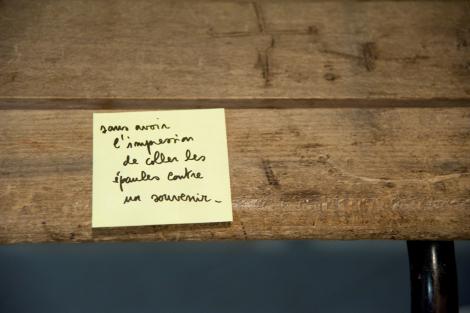 sans avoir
l'impression
de coller les
épaules contre
un souvenir-